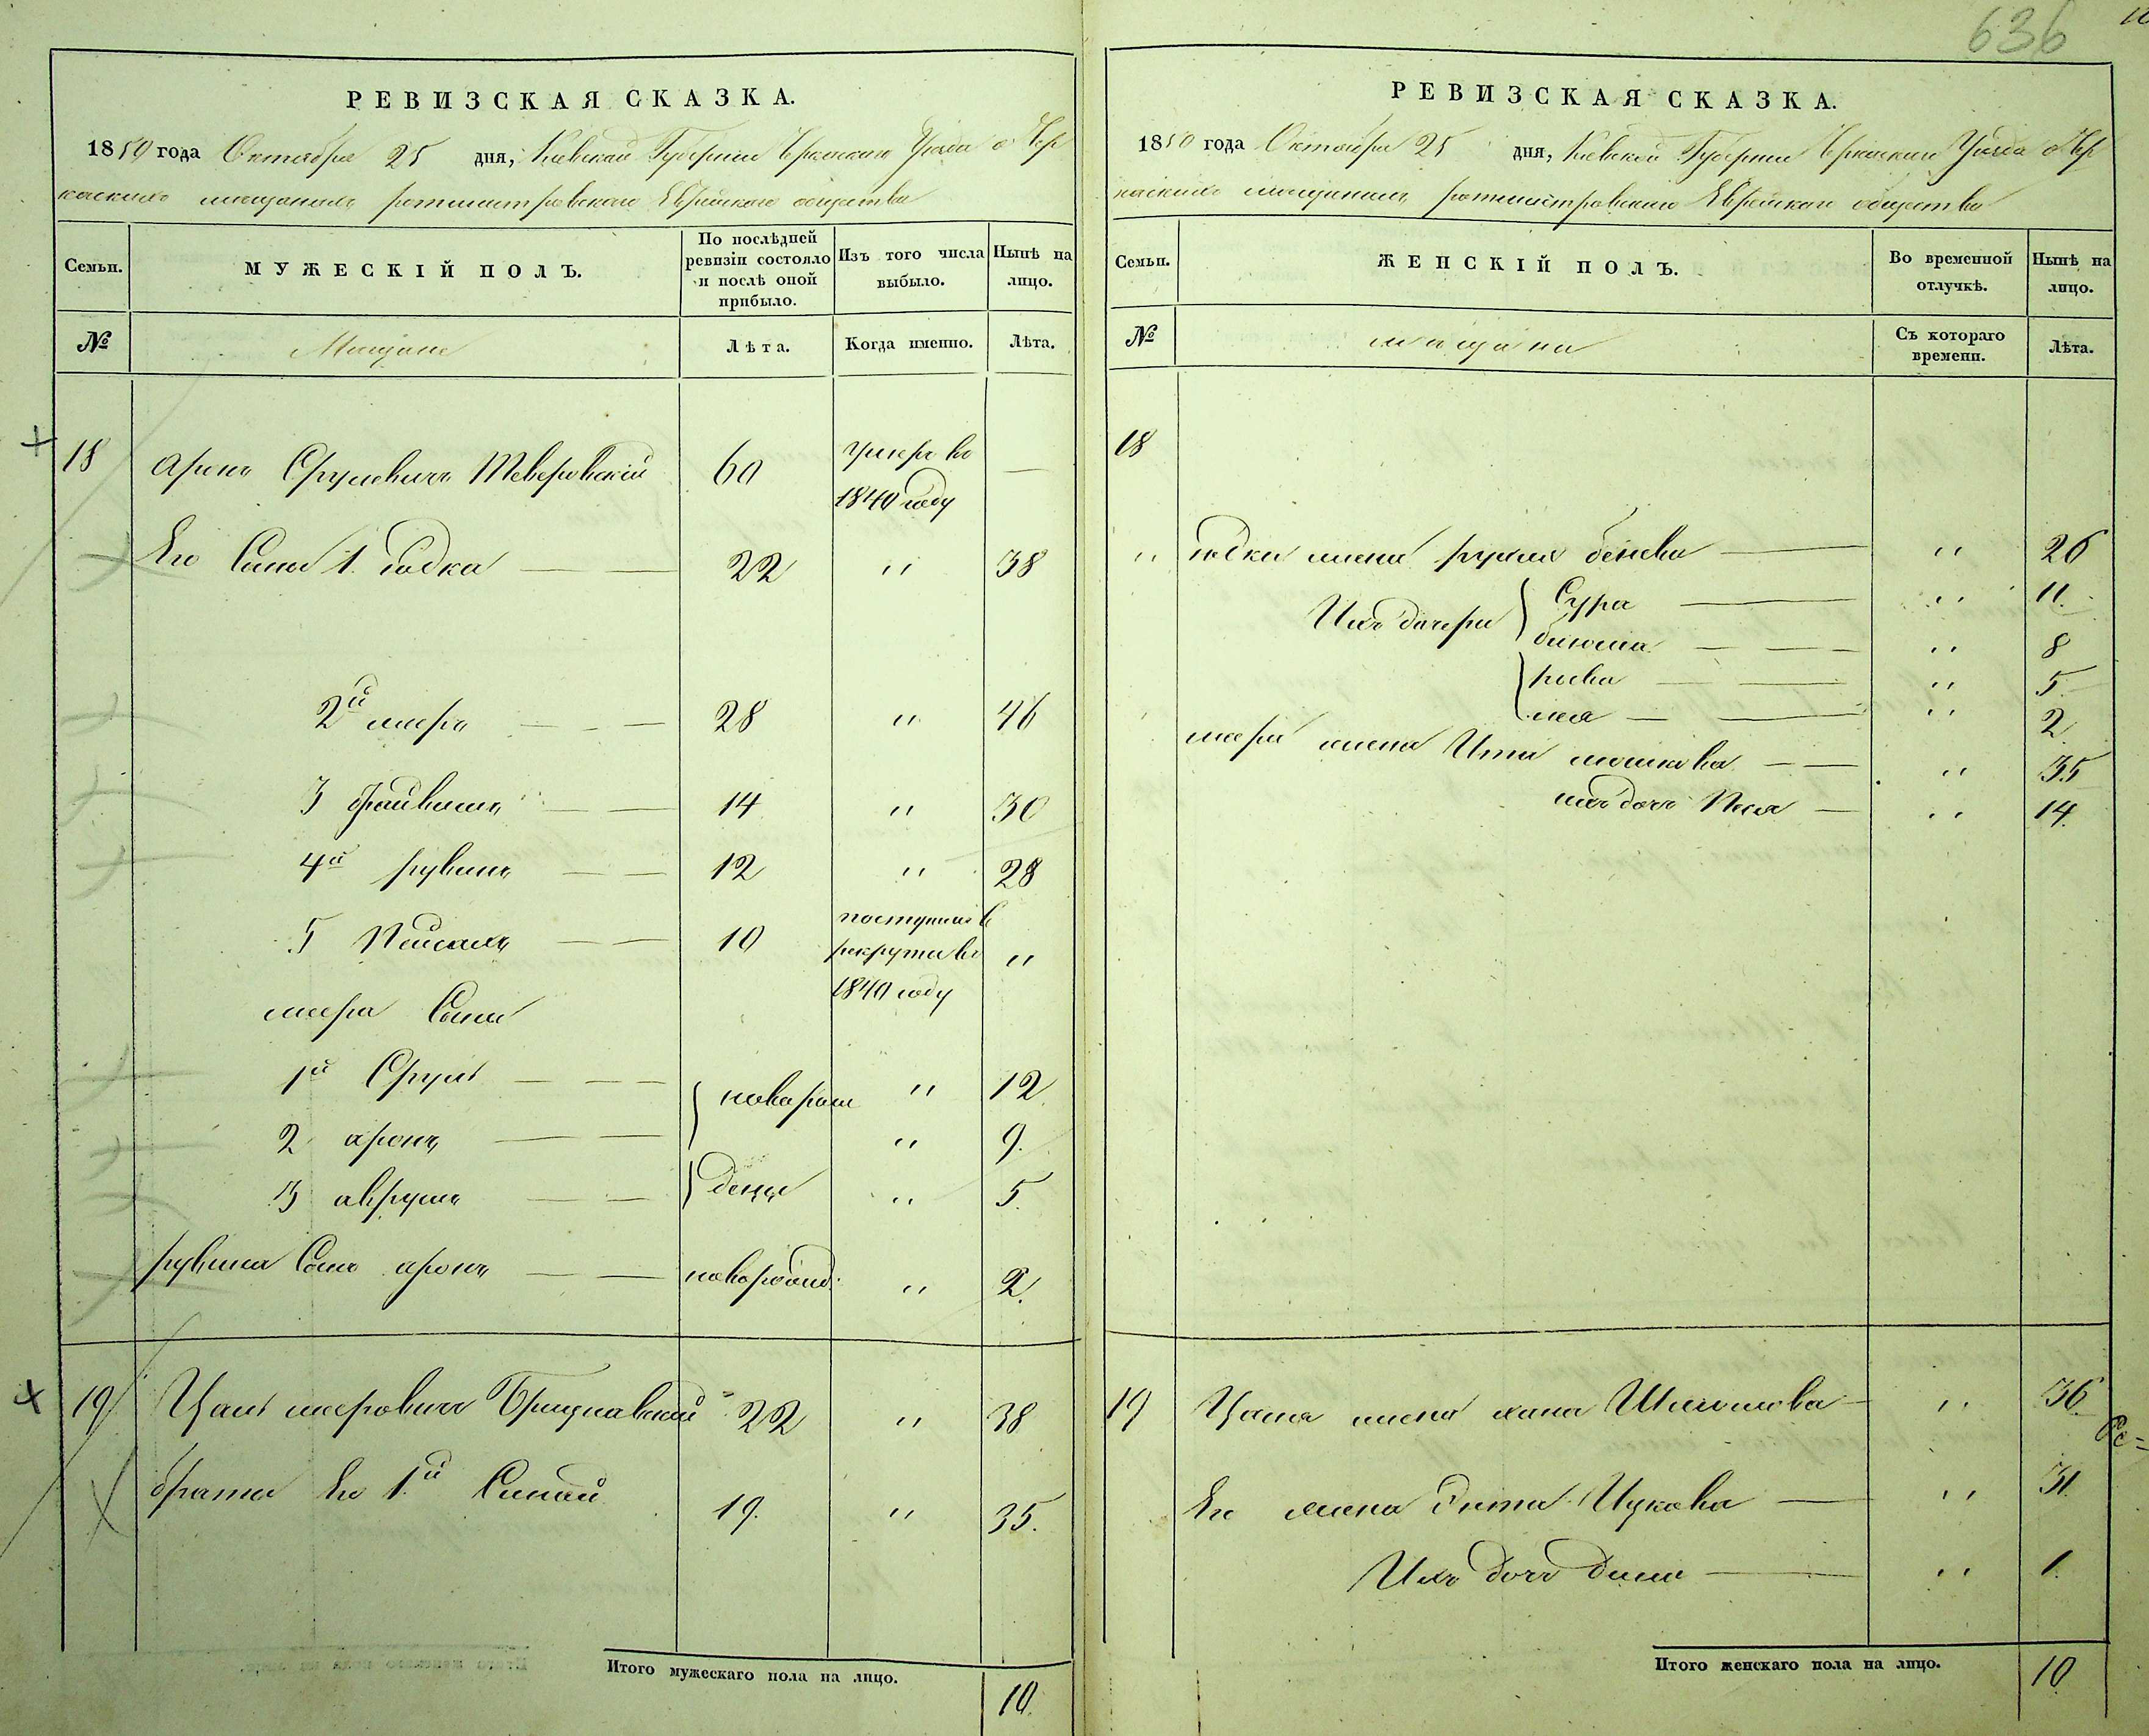 636
РЕВИЗСКАЯ СКАЗКА.
1850 года Октября 25 дня, Киевской Губернии Черкаскаго Уезда о Чер
каскихъ мещанахъ ротмистровскаго Еврейскаго общества
Семьи. МУЖЕСКІЙ ПОЛЪ. По послѣдней ревизіи состояло и послѣ оной прибыло. Изъ того числа выбыло. Нынѣ на лицо.
№ Мещане Лѣта. Когда именно. Лѣта.
18 Аронъ Срулевичъ Тверовский 60 умеръ во 1840 году —
Его Сыны 1. Іодка 22 " 38
2й меръ 28 " 46
3 Файвишъ 14 " 30
4й рувинъ 12 " 28
5 Пейсахъ 10 поступилъ в рекруты во 1840 году "
мера Сыны
1й Сруль новорож " 12
2 аронъ " 9.
3 аврумъ дены " 5.
рувина Сынъ аронъ новорожд: " 2.
19 Цаль меровичъ 22 " 38
братья Его 1й Синай 19. " 35.
Итого мужескаго пола на лицо. 10.
РЕВИЗСКАЯ СКАЗКА.
1850 года Октября 25 дня, Киевской Губернии Черкаскаго Уезда о Чер
каскихъ мещанахъ ротмистровскаго Еврейскаго общества
Семьи. ЖЕНСКІЙ ПОЛЪ. Во временной отлучкѣ. Нынѣ на лицо.
№ мещане Съ котораго времени. Лѣта.
18
" Іодки жена рухля " 26
Ихъ дочери Сура " 11.
" 8
рива " 5.
лея " 2
мера жена Ита мошкова " 35
ихъ дочь Песя " 14.
19 Цаля жена хана Шлиомова " 36.
Его жена Ицкова " 31.
Ихъ дочь " 1.
Итого женскаго пола на лицо. 10